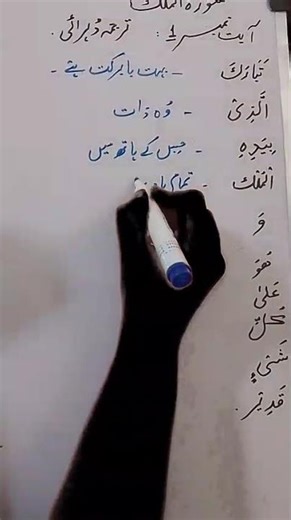 سورة الملک
آیت نمبر 1: ترجمہ دُہرائی.
تَبَارَكَ - بہت بابرکت ہے -
الَّذِیْ - وُہ ذات
بِیَدِہِ - جِس کے ہاتھ میں
الْمُلْکُ - تمام
وَ
ھُوَ
عَلیٰ
کُلِّ
شَیْءٍ
قَدِیْر.